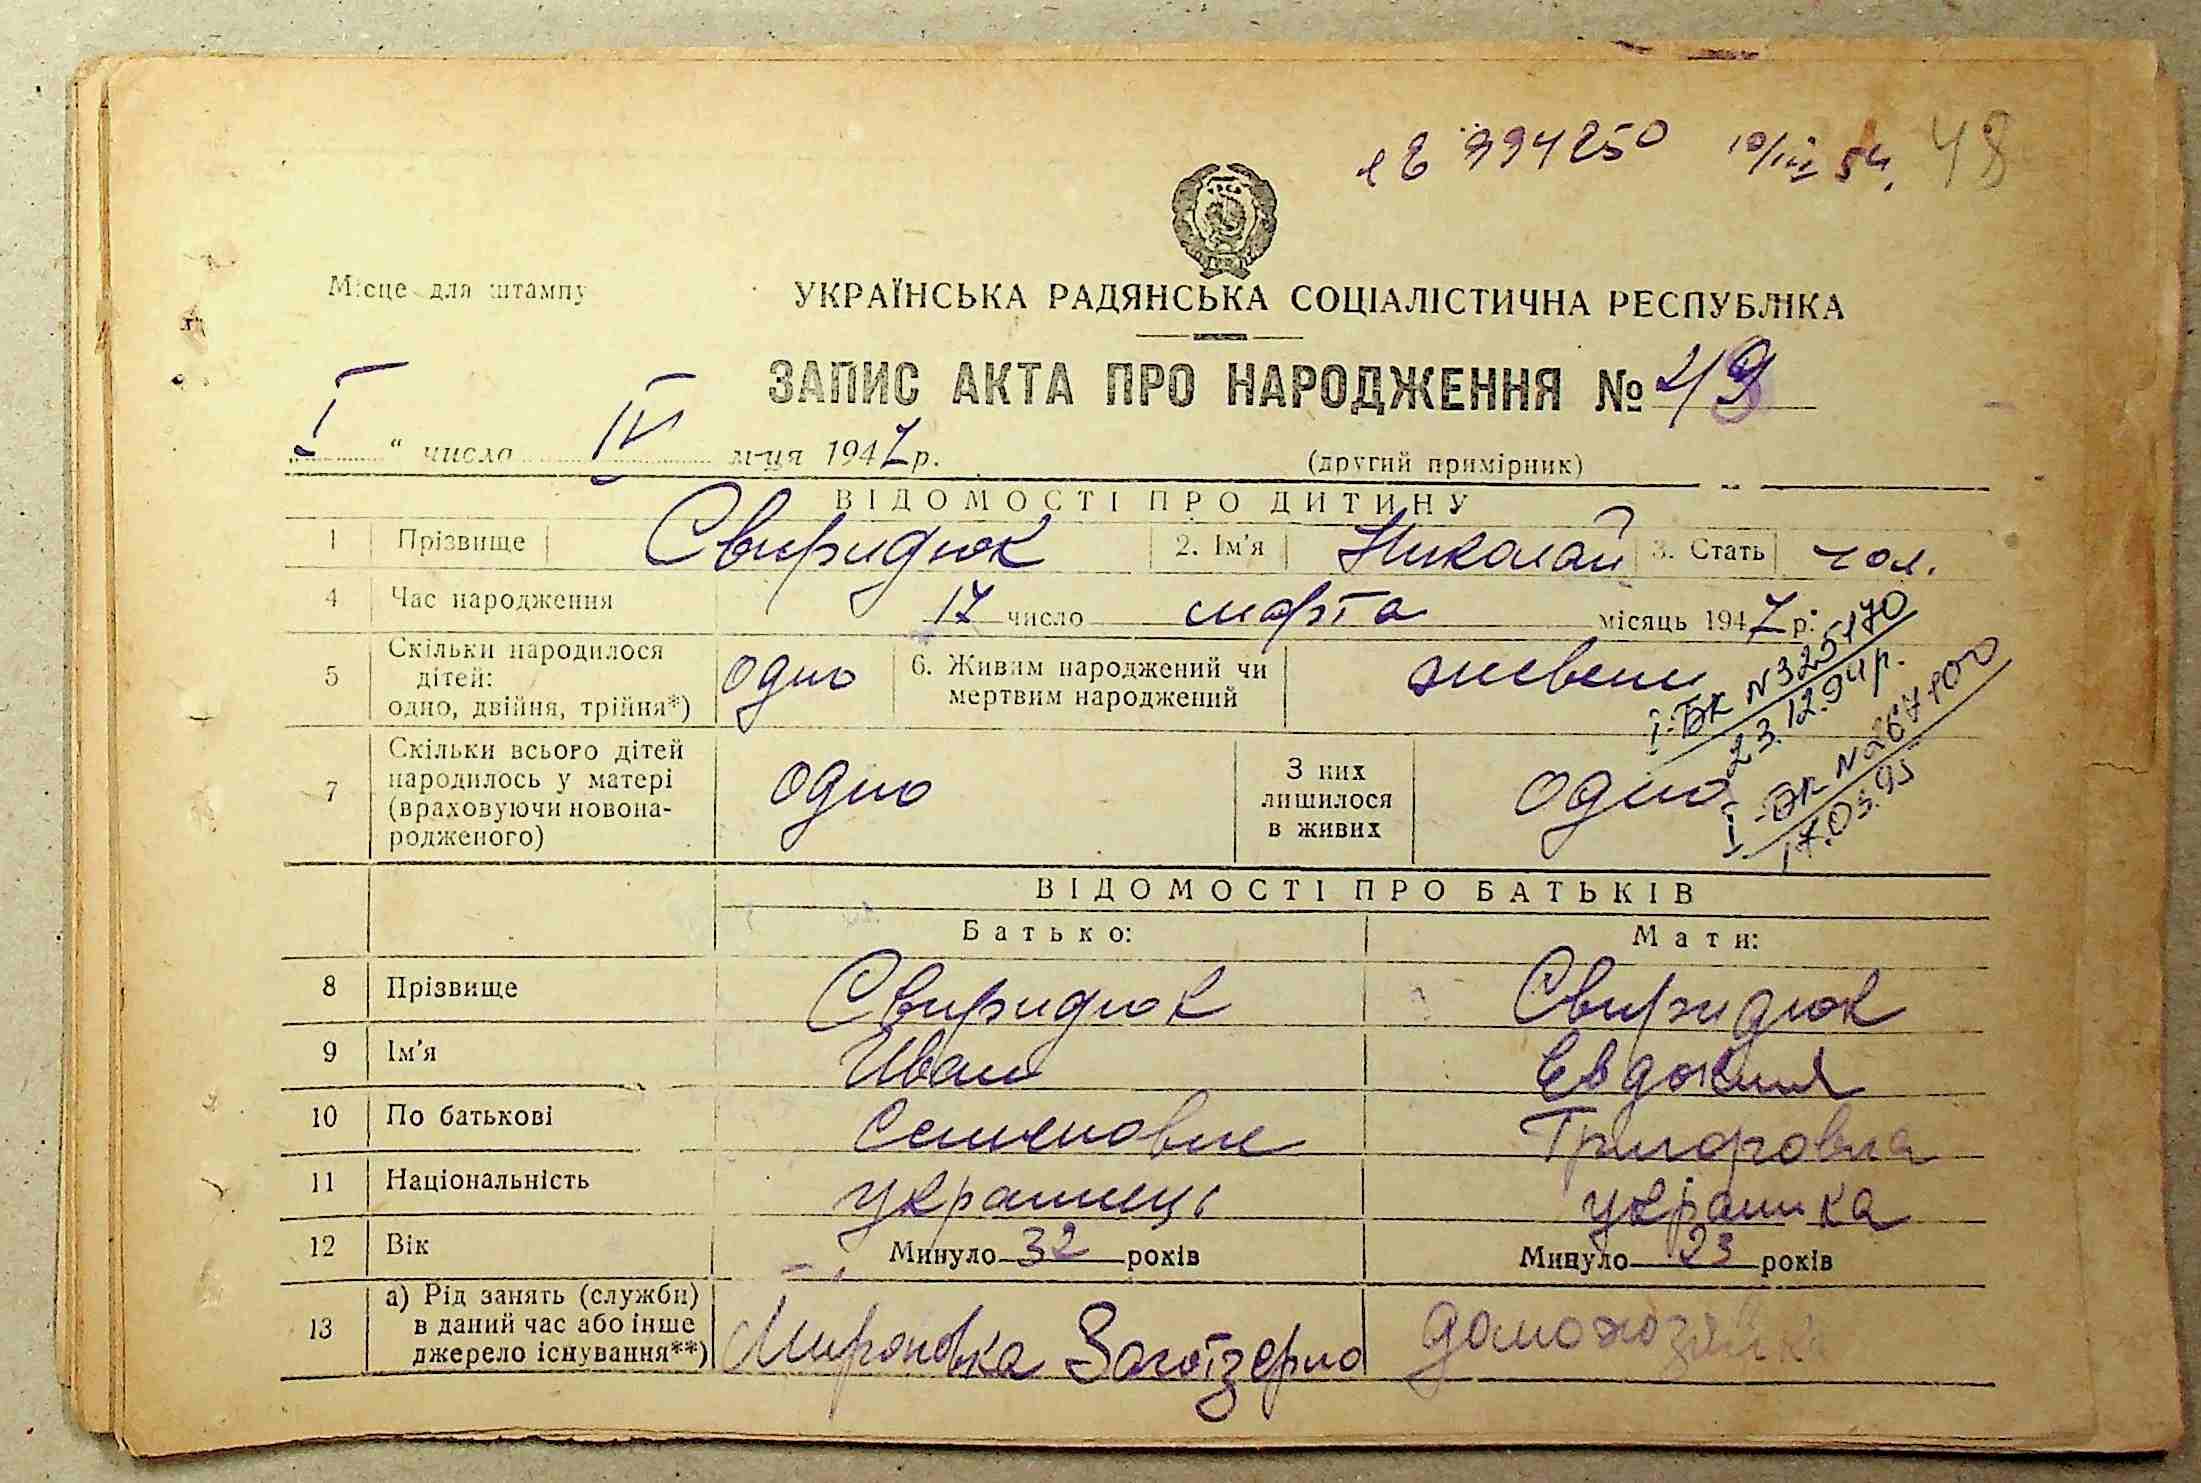 394250 10/III 54. 48
Місце для штампу
УКРАЇНСЬКА РАДЯНСЬКА СОЦІАЛІСТИЧНА РЕСПУБЛІКА
ЗАПИС АКТА ПРО НАРОДЖЕННЯ № 49
„ I “ числа IV м-ця 1947 р.
(другий примірник)
ВІДОМОСТІ ПРО ДИТИНУ
1 Прізвище Свиридюк 2. Ім'я Николай 3. Стать чол.
4 Час народження 17 число марта місяць 1947 р.
5 Скільки народилося
дітей:
одно, двійня, трійня*) одно 6. Живим народжений чи
мертвим народжений живым
І-БК N 325170
23.12.94 р.
І-БК N 267100
17.05.95
7 Скільки всього дітей
народилось у матері
(враховуючи новона-
родженого) одно З них
лишилося
в живих одно
ВІДОМОСТІ ПРО БАТЬКІВ
Батько: Мати:
8 Прізвище Свиридюк Свиридюк
9 Ім'я Иван Евдокия
10 По батькові Семенович Григоровна
11 Національність українець українка
12 Вік Минуло 32 років Минуло 23 років
13 а) Рід занять (служби)
в даний час або інше
джерело існування**) Мироновка Заготзерно домохозяйка